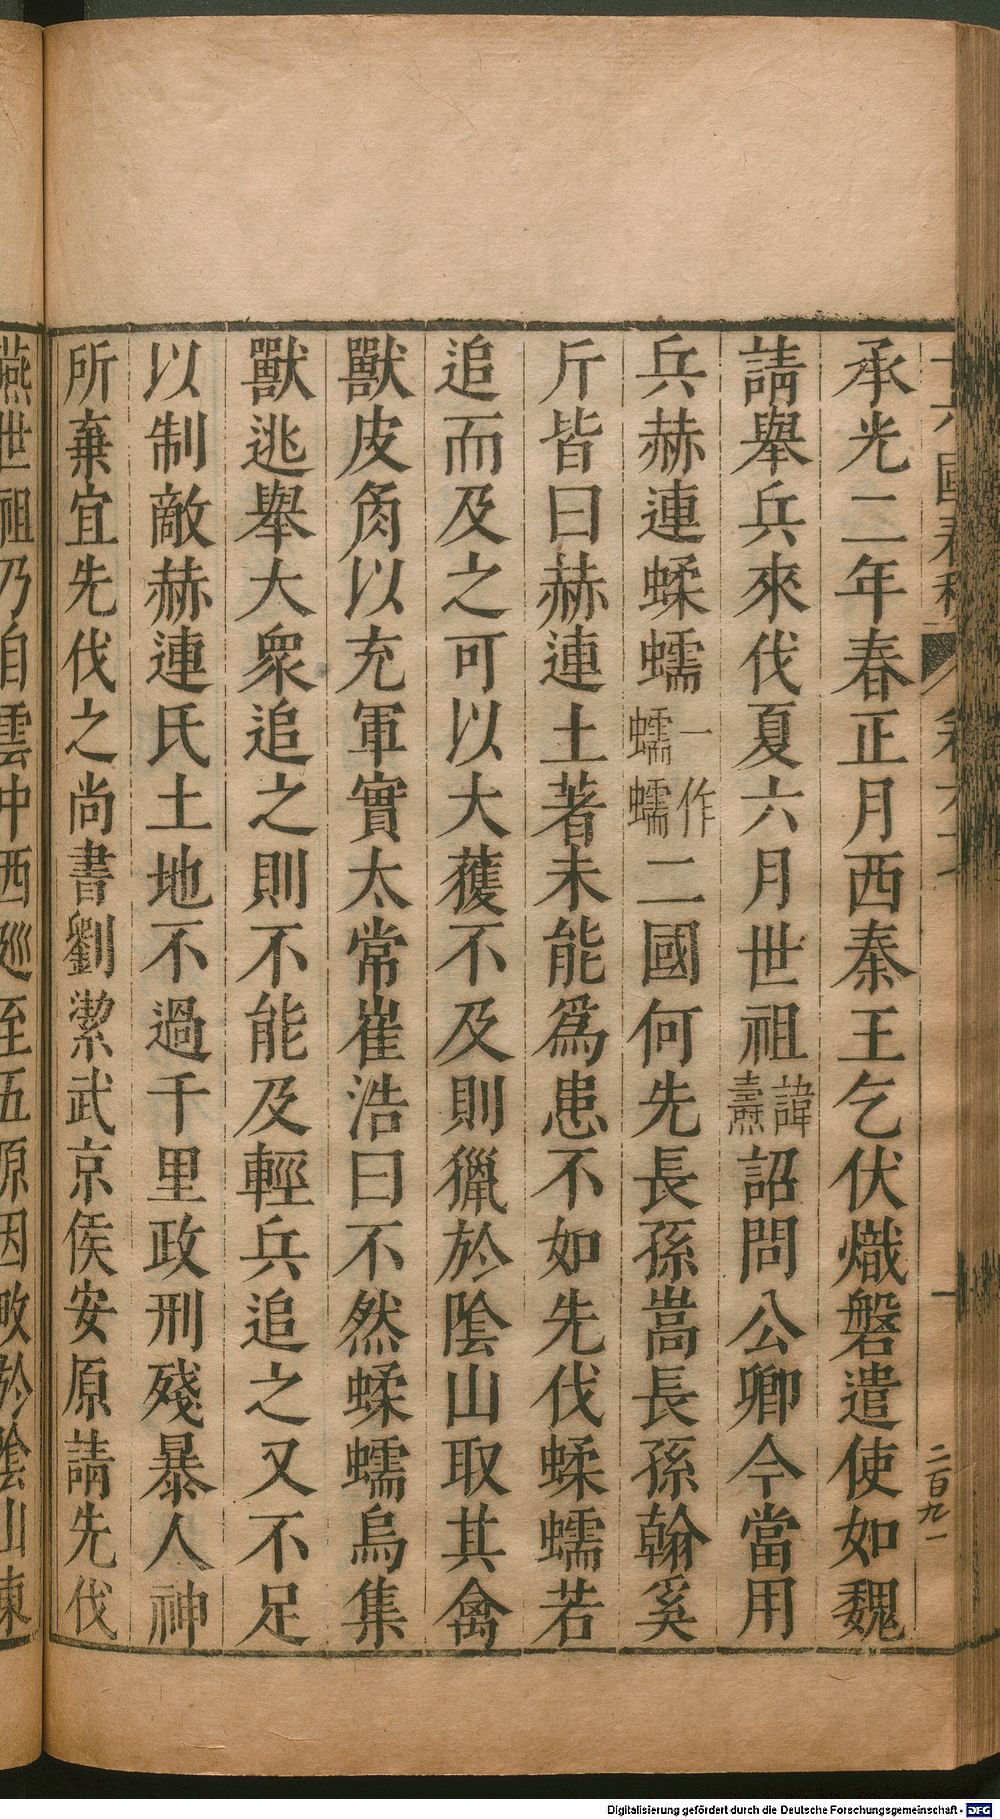 承光二年春正月西秦王乞伏熾磐遣使如魏
請舉兵來伐夏六月世祖諱燾詔問公卿今當用
兵赫連蝚蠕一作蠕蠕二國何先長孫嵩長孫翰奚
斤皆曰赫連土著未能爲患不如先伐蝚蠕若
追而及之可以大獲不及則獵於陰山取其禽
獸皮角以充軍實太常崔浩曰不然蝚蠕鳥集
獸逃舉大衆追之則不能及輕兵追之又不足
以制敵赫連氏土地不過千里政刑殘暴人神
所棄宜先伐之尚書劉潔武京侯安原請先伐
燕世祖乃自雲中西廵至五原因畋於陰山東
二百九一
Digitalisierung gefördert durch die Deutsche Forschungsgemeinschaft - DFG